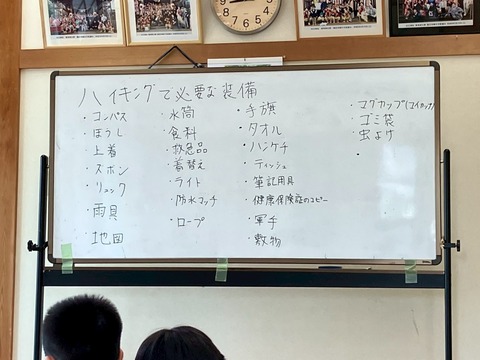 ハイキングで必要な装備
・コンパス
・ぼうし
・上着
・ズボン
・リュック
・雨具
・地図
・水筒
・食料
・救急品
・着替え
・ライト
・防水マッチ
・ロープ
・手旗
・タオル
・ハンケチ
・ティッシュ
・筆記用具
・健康保険証のコピー
・軍手
・敷物
・マグカップ(マイカップ)
・ゴミ袋
・虫よけ
・